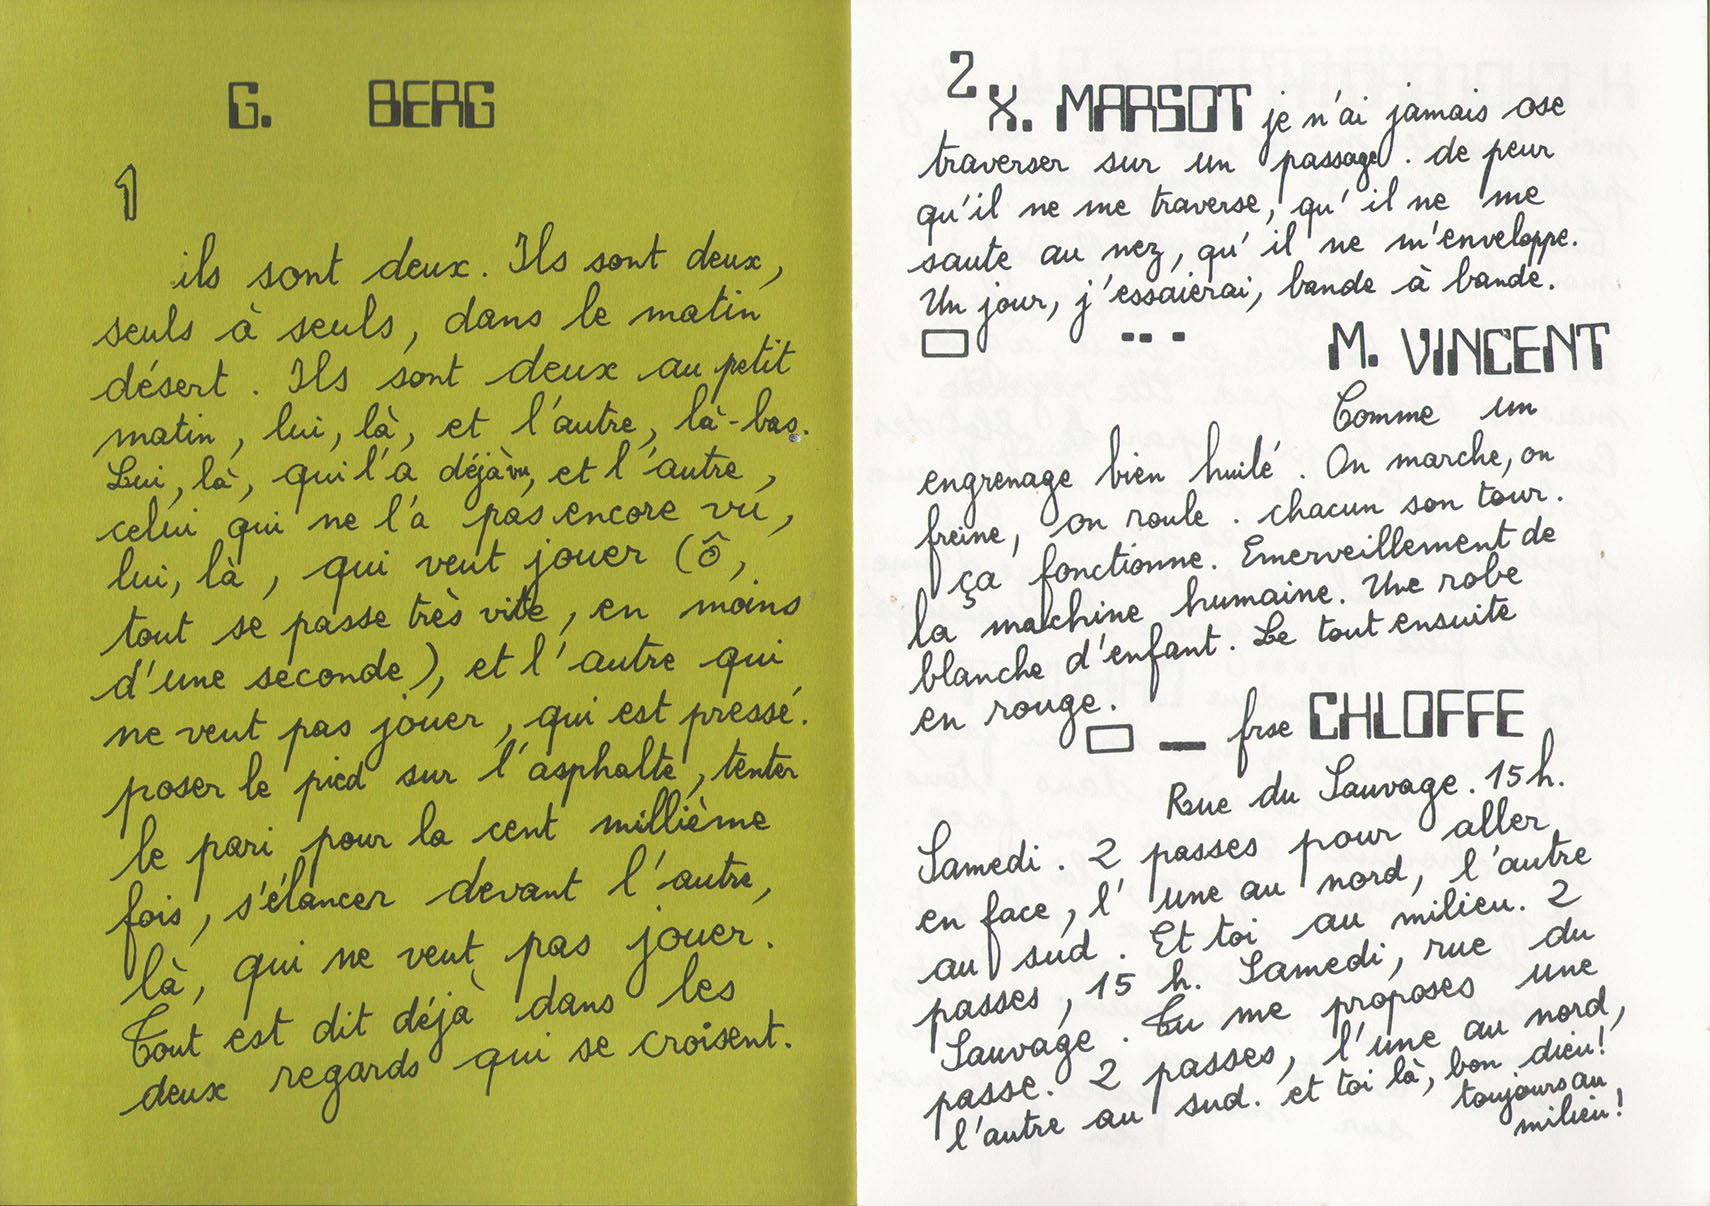 G. BERG
1
ils sont deux. Ils sont deux,
seuls à seuls, dans le matin
désert. Ils sont deux au petit
matin, lui, là, et l'autre, là-bas.
Lui, là, qui l'a déjà vu, et l'autre,
celui qui ne l'a pas encore vu,
lui, là, qui veut jouer (ô,
tout se passe très vite, en moins
d'une seconde), et l'autre qui
ne veut pas jouer, qui est pressé.
poser le pied sur l'asphalte, tenter
le pari pour la cent millième
fois, s'élancer devant l'autre,
là, qui ne veut pas jouer.
Tout est dit déjà dans les
deux regards qui se croisent.
2
X. MARSOT je n'ai jamais ose
traverser sur un passage. de peur
qu'il ne me traverse, qu'il ne me
saute au nez, qu'il ne m'enveloppe.
Un jour, j'essaierai, bande à bande.
M. VINCENT
Comme un
engrenage bien huilé. On marche, on
freine, on roule. chacun son tour.
ça fonctionne. Emerveillement de
la machine humaine. Une robe
blanche d'enfant. Le tout ensuite
en rouge.
frse CHLOFFE
Rue du Sauvage. 15h.
Samedi. 2 passes pour aller
en face, l'une au nord, l'autre
au sud. Et toi au milieu. 2
passes, 15 h. Samedi, rue du
Sauvage. Tu me proposes une
passe. 2 passes, l'une au nord,
l'autre au sud. et toi là, bon dieu!
toujours au
milieu!